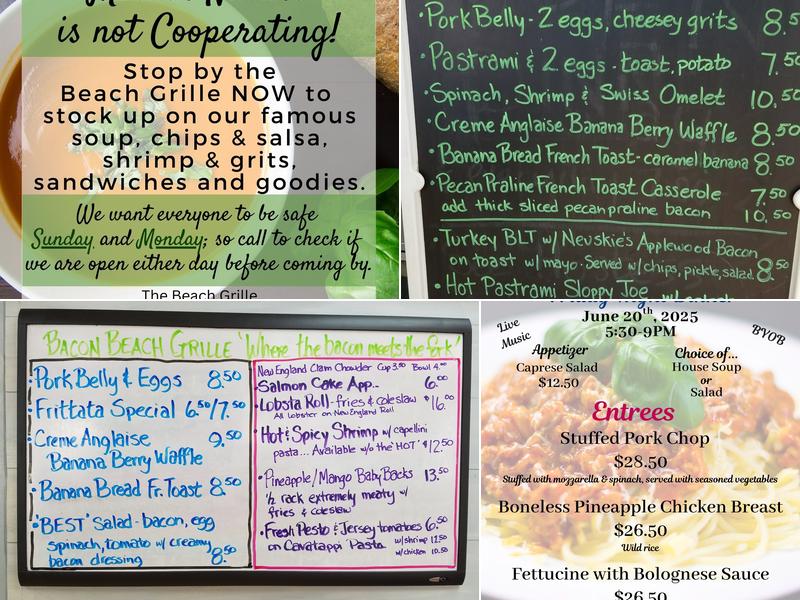 is not Cooperating!
Stop by the
Beach Grille NOW to
stock up on our famous
soup, chips & salsa,
shrimp & grits,
sandwiches and goodies.
We want everyone to be safe
Sunday and Monday; so call to check if
we are open either day before coming by.
The Beach Grille
• Pork Belly - 2 eggs, cheesey grits 8.5
• Pastrami & 2 eggs - toast, potato 7.50
• Spinach, Shrimp & Swiss Omelet 10.50
• Creme Anglaise Banana Berry Waffle 8.50
• Banana Bread French Toast - caramel banana 8.50
• Pecan Praline French Toast Casserole 7.50
add thick sliced pecan praline bacon 10,50
• Turkey BLT w/ Nevskie's Applewood Bacon
on toast w/ mayo. Served w/ chips, pickle, salad 8.50
• Hot Pastrami Sloppy Joe
BACON BEACH GRILLE "Where the bacon meets the fork"
• Pork Belly & Eggs 8.50
• Frittata Special 6.50/7.50
• Creme Anglaise 9.50
Banana Berry Waffle
• Banana Bread Fr. Toast 8.50
• "BEST" Salad - bacon, egg
spinach, tomato w/ creamy
bacon dressing 8.50
New England Clam Chowder Cup 3.50 Bowl 4.00
• Salmon Cake App.. 6.00
• Lobsta Roll - fries & coleslaw $16.00
All Lobster on New England Roll
• Hot & Spicy Shrimp w/ capellini
pasta... Available w/o the "HOT" $12.50
• Pineapple/Mango Baby Backs 13.50
½ rack extremely meaty w/
fries & coleslaw
• Fresh Pesto & Jersey tomatoes 6.50
on Cavatappi Pasta w/ shrimp 12.50
w/ chicken 10.50
June 20th, 2025
5:30-9PM
Live
Music
BYOB
Appetizer
Caprese Salad
$12.50
Choice of...
House Soup
or
Salad
Entrees
Stuffed Pork Chop
$28.50
Stuffed with mozzarella & spinach, served with seasoned vegetables
Boneless Pineapple Chicken Breast
$26.50
Wild rice
Fettucine with Bolognese Sauce
$26.50